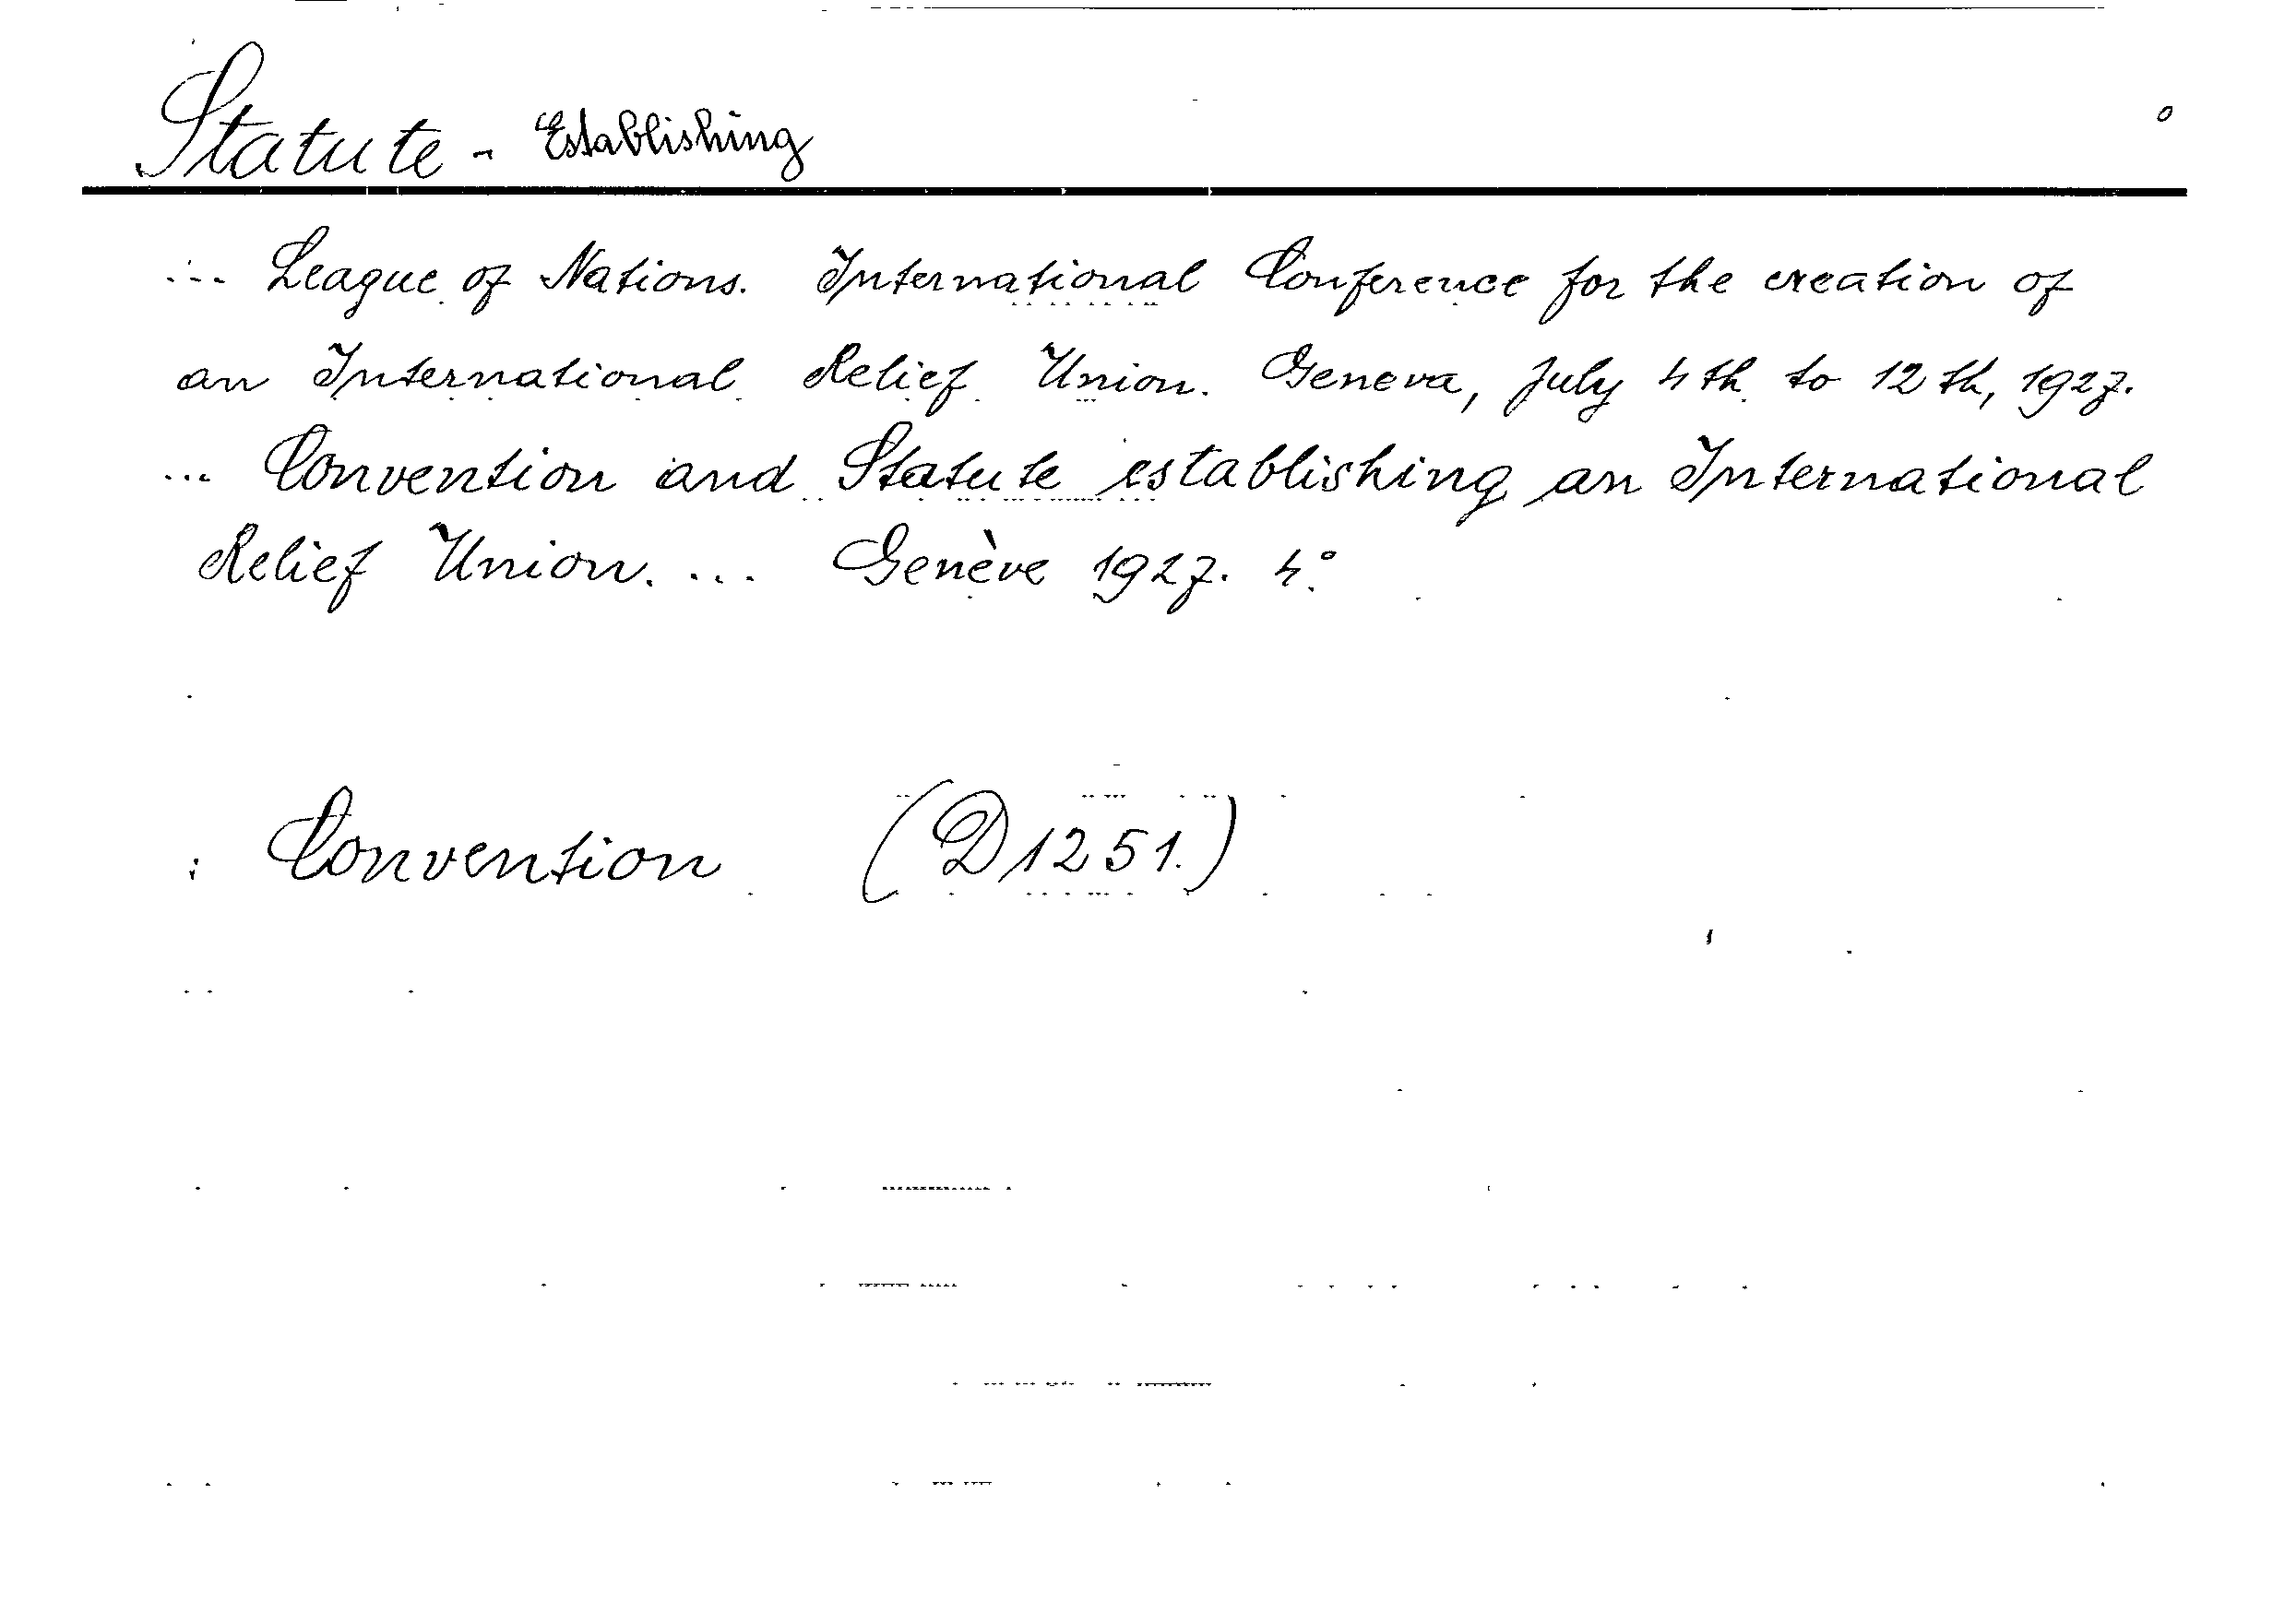 Statute - Establishing
... League of Nations. International Conference for the creation of
an International Relief Union. Geneva, July 4th to 12th, 1927.
... Convention and Statute establishing an International
Relief Union. ... Genève 1927. 4°.
: Convention (D1251.)